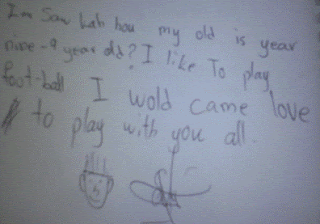 I'm Saw kah hou my old is year
nine-9 year old? I like To play
foot-ball I wold came love
to play with you all.